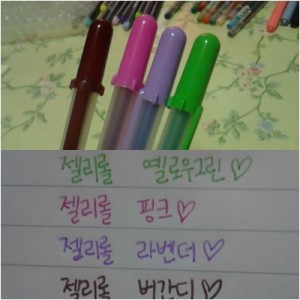 젤리롤 옐로우그린♡
젤리롤 핑크♡
젤리롤 라벤더♡
젤리롤 버간디♡